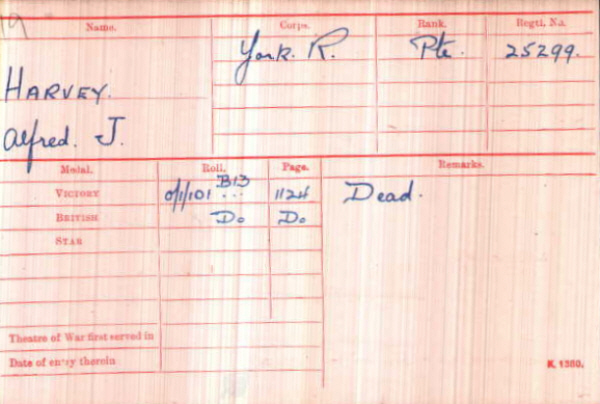 19
Name. Corps. Rank. Regtl. No.
HARVEY. York. R. Pte. 25299.
Alfred. J.
Medal. Roll. Page. Remarks.
VICTORY O/1/101 B13 1124 Dead.
BRITISH Do Do
STAR
Theatre of War first served in
Date of entry therein
K. 1380.